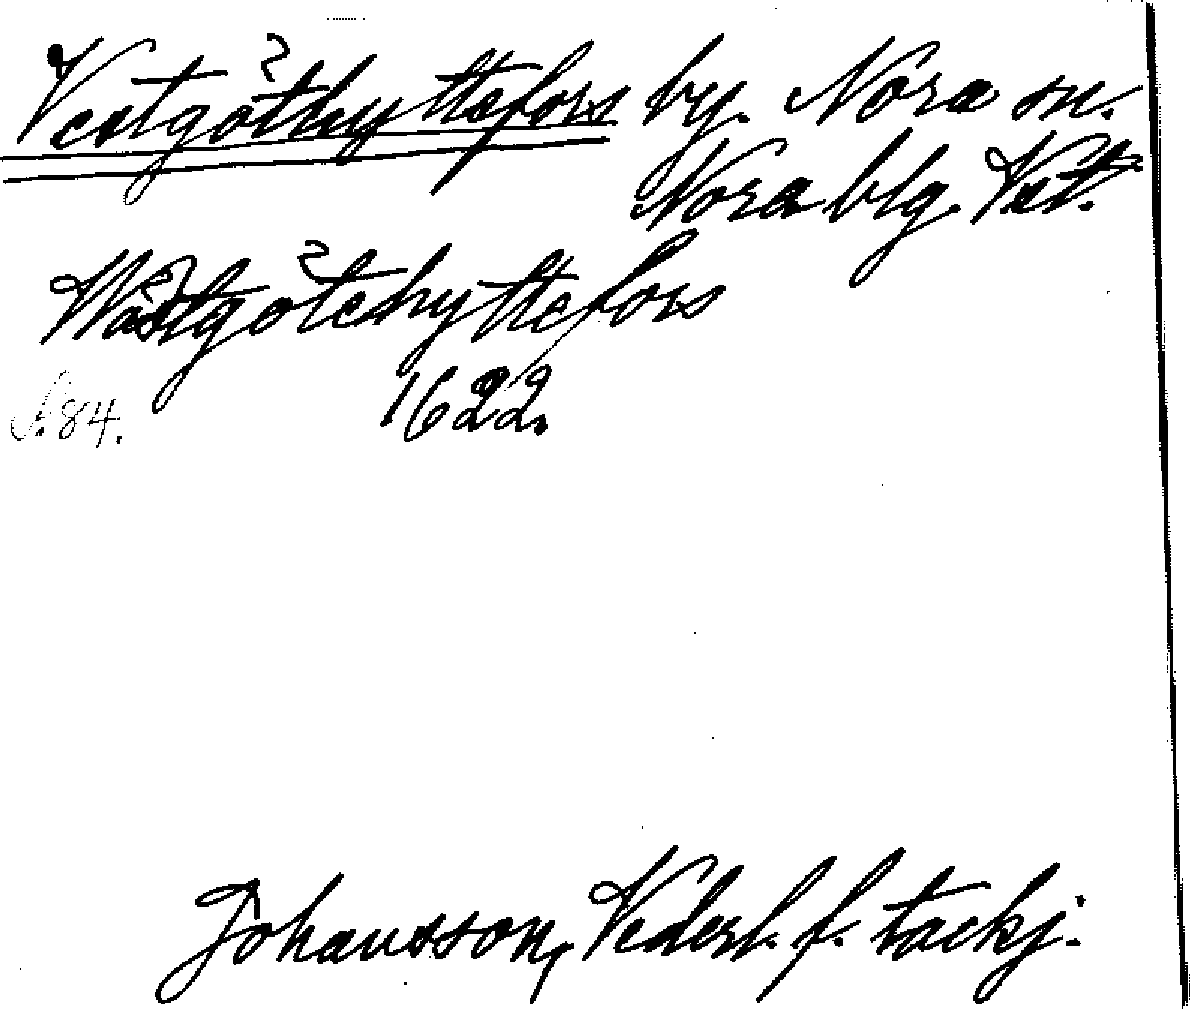 Vestgöthyttefors by. Nora sn.
Nora blg. Vst.
Wästgötehyttefors
S. 84. 1622.
Johansson, Vederl. f. tackj.